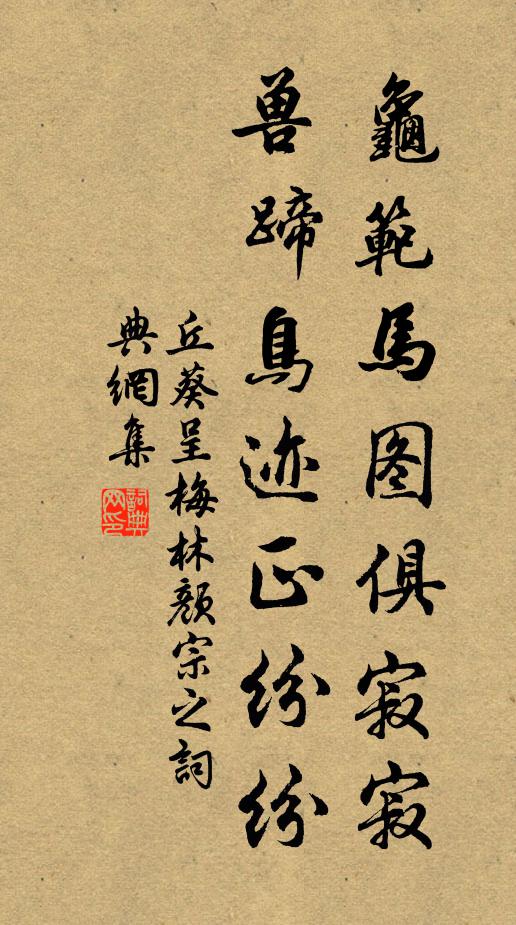 龜範馬图俱寂寂
兽蹄鳥迹正纷纷
丘葵呈梅林顏宗之詞
典網集
詞典网印